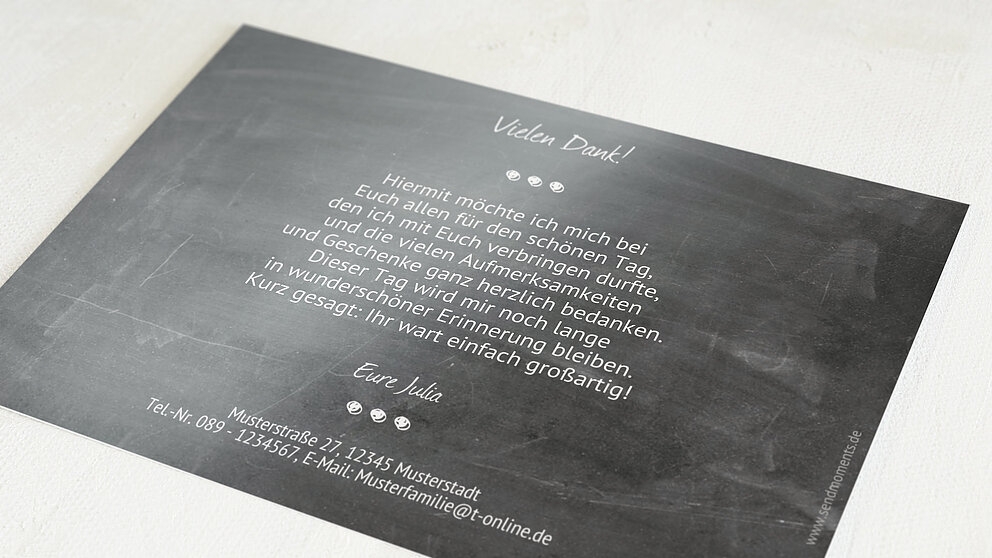 Vielen Dank!
Hiermit möchte ich mich bei
Euch allen für den schönen Tag,
den ich mit Euch verbringen durfte,
und die vielen Aufmerksamkeiten
und Geschenke ganz herzlich bedanken.
Dieser Tag wird mir noch lange
in wunderschöner Erinnerung bleiben.
Kurz gesagt: Ihr wart einfach großartig!
Eure Julia
Musterstraße 27, 12345 Musterstadt
Tel.-Nr. 089 - 1234567, E-Mail: Musterfamilie@t-online.de
www.sendmoments.de